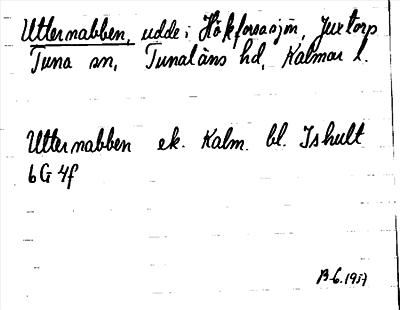 Utternabben, udde i Hökforsasjön, Juxtorp
Tuna sn, Tunaläns hd, Kalmar l.
Utternabben ek. Kalm. bl. Ishult
6G 4f
B-G. 1937